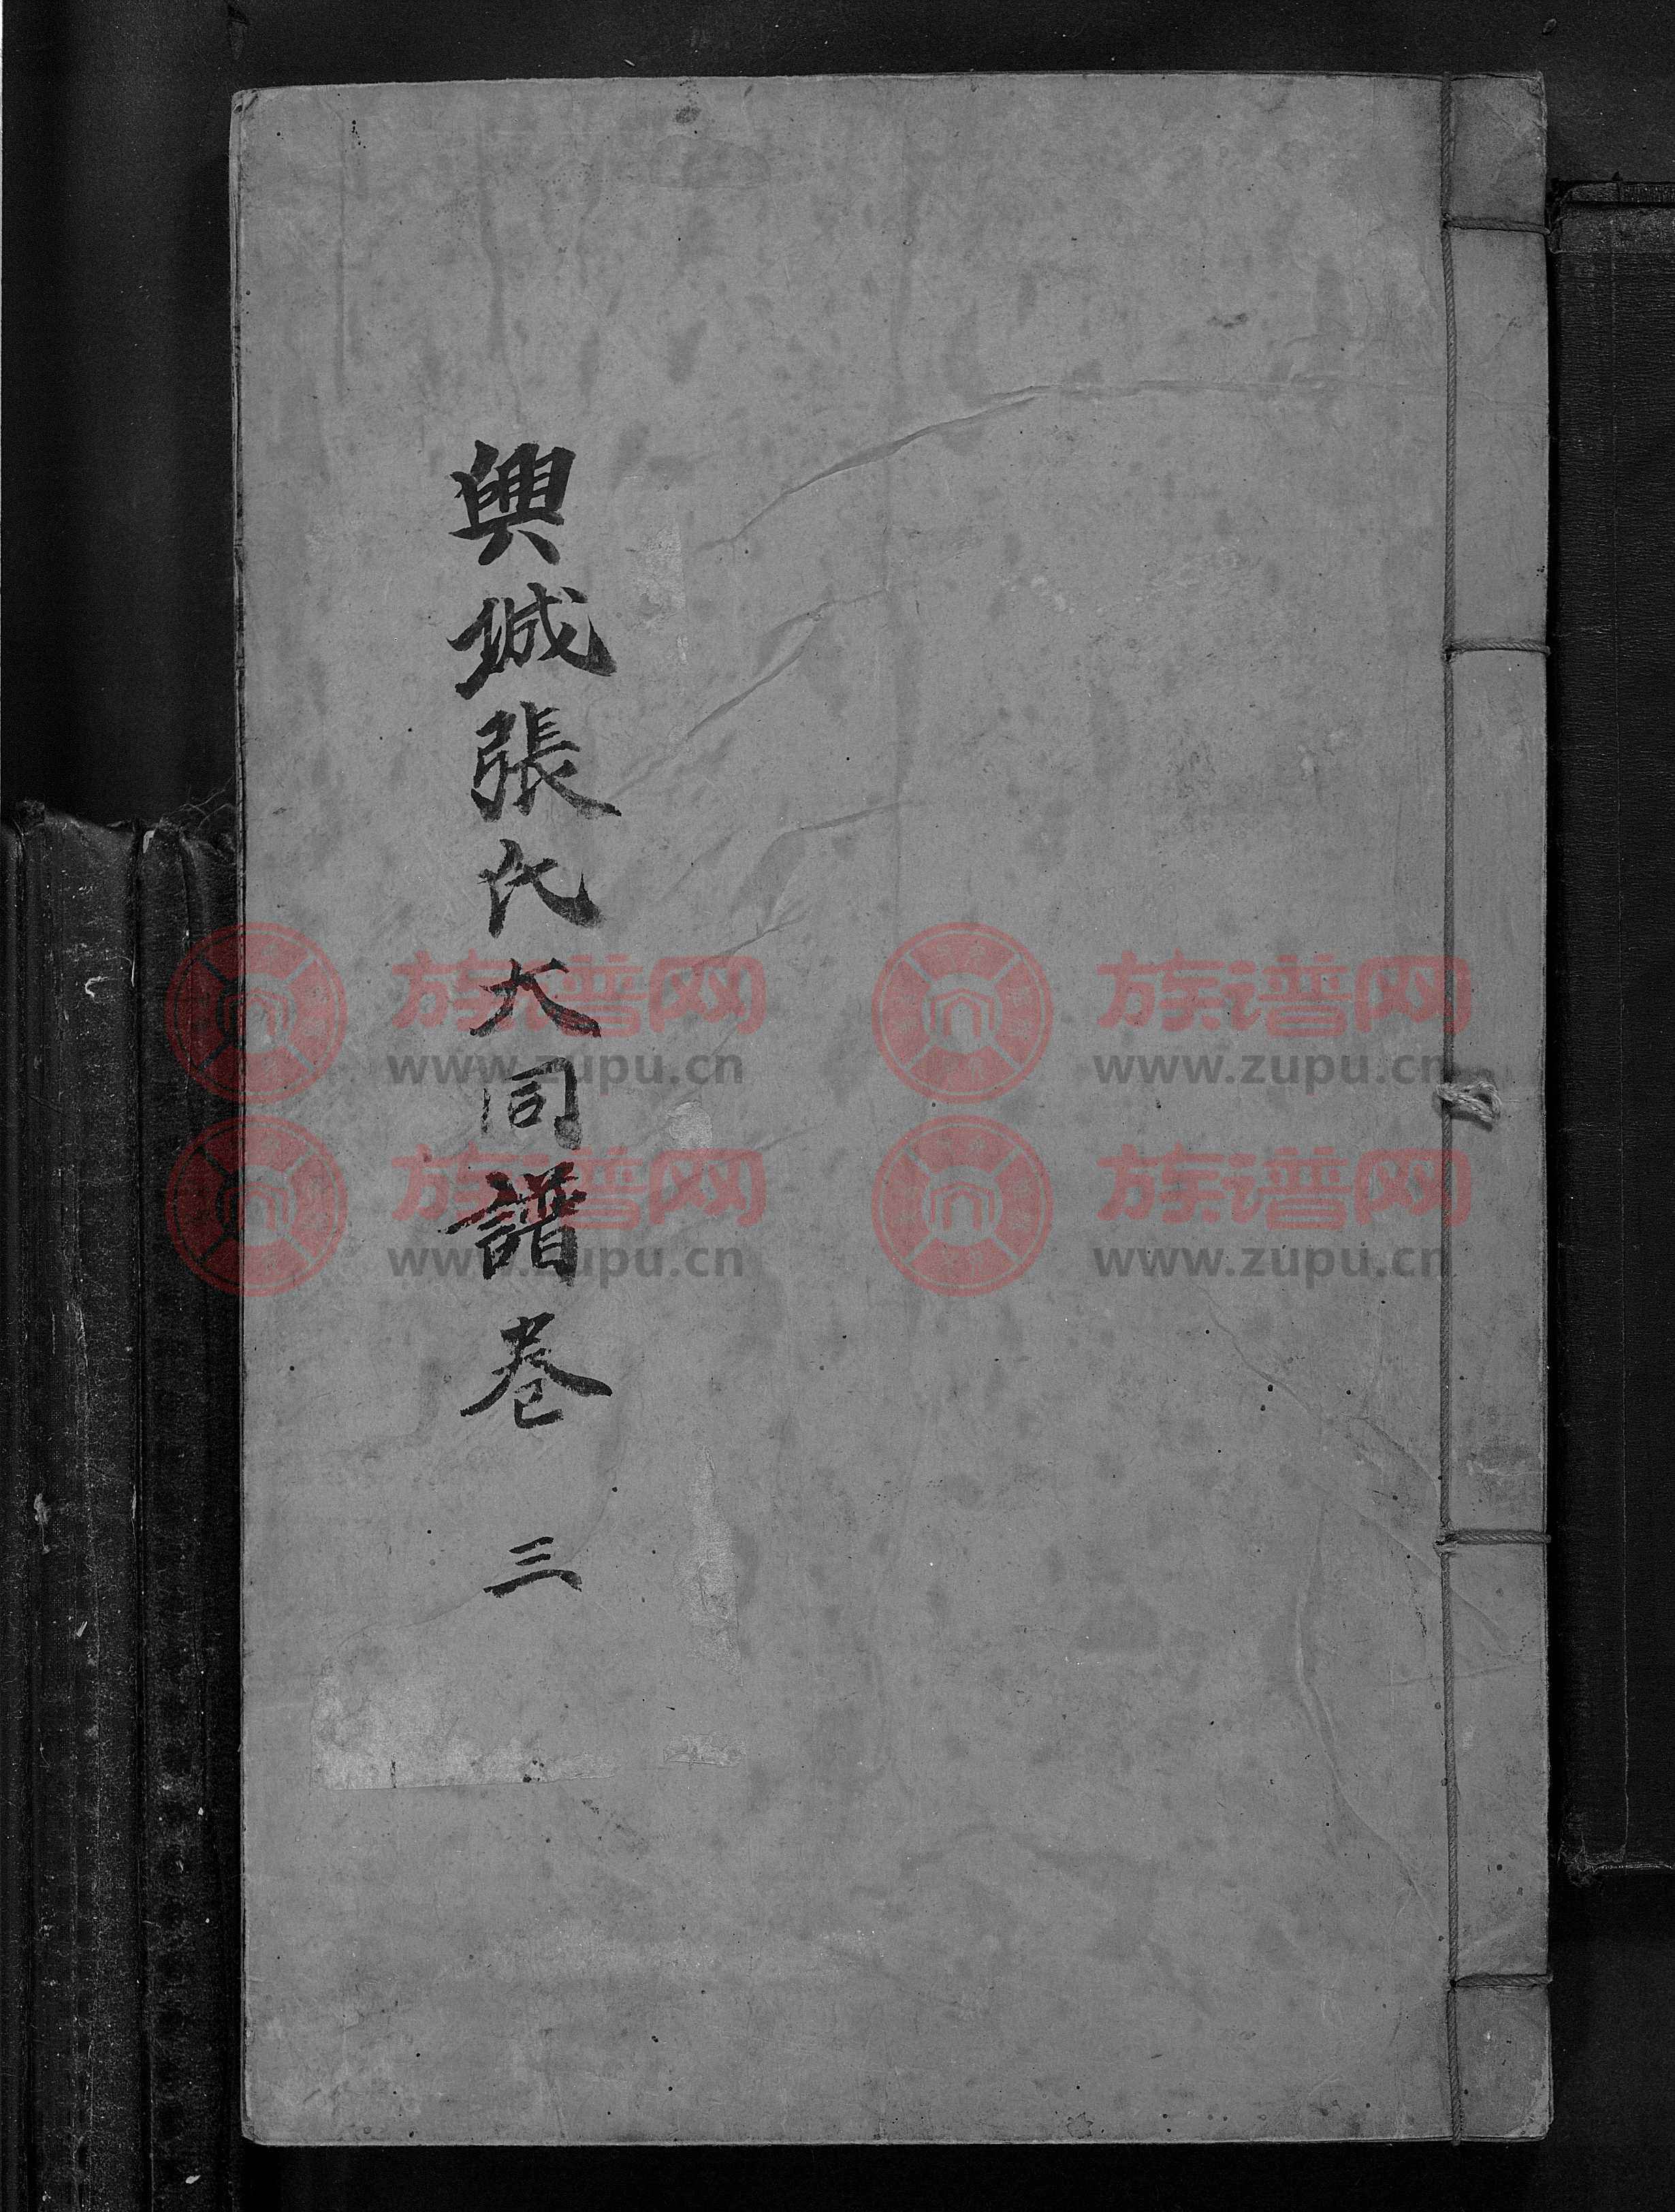 興城張氏大同譜卷三
族谱网
www.zupu.cn
族谱网
www.zupu.cn
族谱网
www.zupu.cn
族谱网
www.zupu.cn